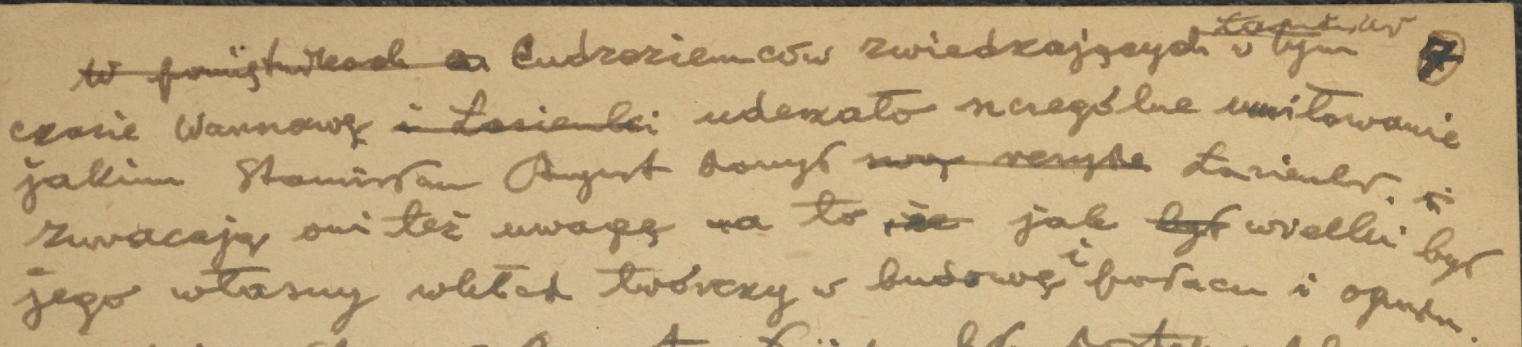 w pamiętnikach Cudzoziemców zwiedzających w tym 7
czasie Warszawę i Łazienki uderzało szczególne umiłowanie
jakim Stanisław August darzył swą Łazienki.
zwracają oni też uwagę na to że jak był wielki był
jego własny wkład twórczy w budowę i pałacu i